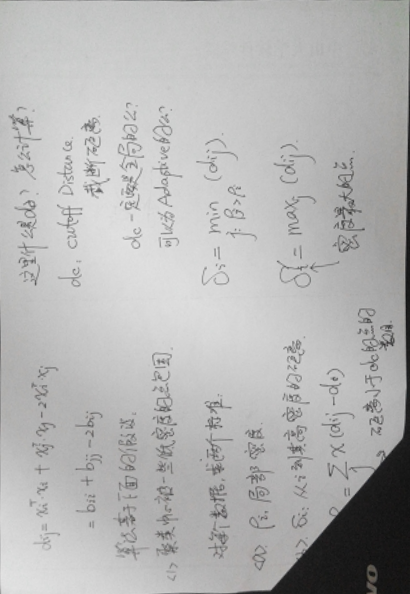 dij = xiᵀxi + xjᵀxj - 2xiᵀxj
= bii + bjj - 2bij
算法基于下面的假设:
<1> 聚类中心被一些低密度的点包围.
对每个数据, 求两个标准:
<1>. ρi, 局部密度.
<2>. δi: 从 i 到更高密度的距离.
= Σj χ(dij - dc)
→ 距离小于dc的点的
这里什么是dc? 怎么计算?
dc: cutoff Distance.
截断距离.
dc 一定要是全局的么?
可以为 Adaptive的么?
δi = min (dij)
j: ρj > ρi
δi = maxj (dij).
密度最大的点.
NO